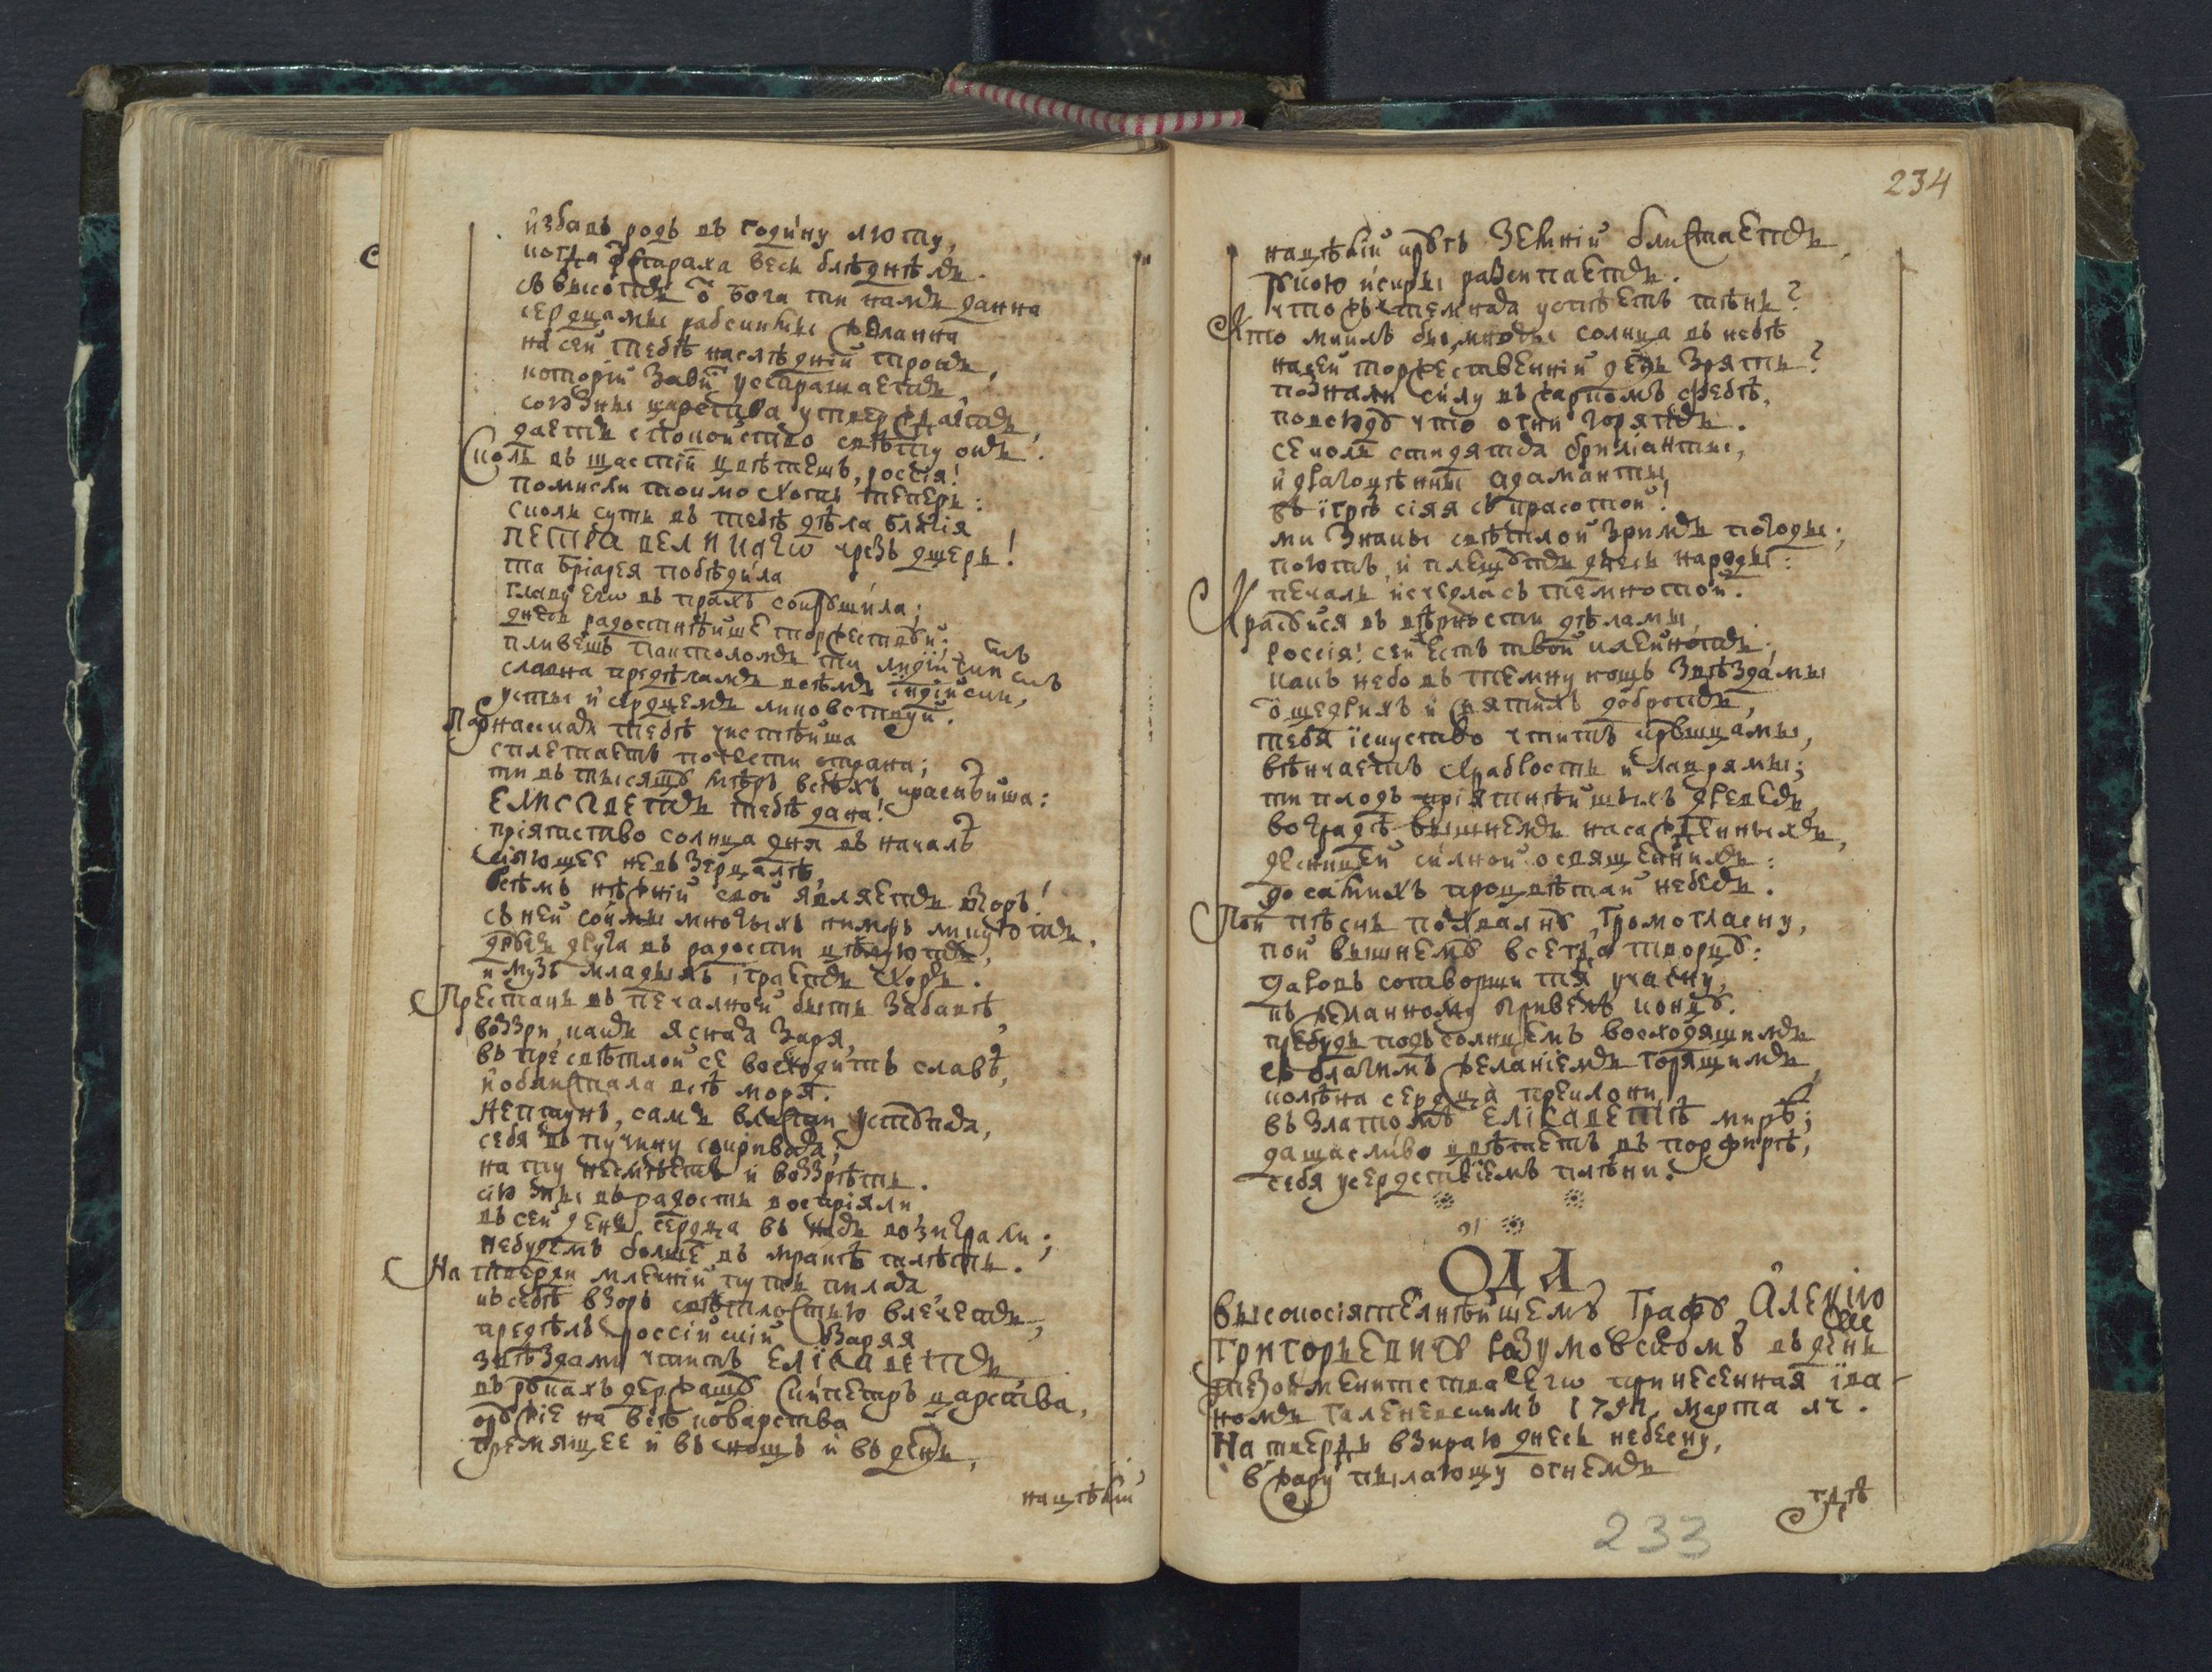 избавь родъ въ годину люту,
когда ѿ страха весь блѣднѣлъ.
съ высотъ ѿ Бога ты намъ данна
сердцами рабскими желанна
на сей тебѣ наслѣдній тронъ,
которій завѣ устрашаетъ,
союзны царства утверждаетъ,
даетъ спокойство свѣту онъ.
Сколь въ щастіи цвѣтешъ, россія!
помысли твоимо тепери:
сколь суть въ тебѣ дѣла благія
ПЕТРА ВЕЛИКАГѠ чрезъ дщерь!
та бріарея побѣдила
главу егѡ въ прахъ сокрушила;
днесь радостнѣйше торжествуй;
пливешъ Пактоломъ ты лидійскимъ
славна предѣламъ всѣмъ індійскимъ,
усты и сердцемъ ликовствуй.
Парнасскаѧ тебѣ чистѣйша
сплетаетъ почести страна;
ты въ тысящу мѣръ всѣхъ краснѣйша:
ЕЛИСАВЕТЪ тебѣ дана!
пріятство солнца дня въ началѣ
сіяющее невъ зерцалѣ,
всѣмъ нѣжній свой являетъ взоръ!
съ ней соймы многыхъ нимфъ ликуютъ.
другъ друга въ радости цѣлуютъ,
и музъ младыхъ іграетъ хоръ.
Престань въ печалной быть забавѣ,
воззри, какъ ясная заря,
въ пресвѣтлой се восходитъ славѣ,
и облистала всѣ моря.
Нептунъ, самъ власти уступая,
себя въ пучину сокривая,
на ту несмѣетъ и воззрѣть.
сію мы въ радость воспріяли
въ сей день, сердца въ насъ возиграли;
небудемъ болше въ мракѣ тлѣть.
На тверди млечній путь пилая
къ себѣ взоръ свѣтлостью влечетъ,
предѣлъ россійскій озаряя
звѣздами чтитъ ЕЛІСАВЕТЪ
въ рукахъ держащу скипетръ царства,
оружіе на всѣ коварства
гремящее и въ нощъ и въ день,
нацвѣлій
234
нацвѣлій кругъ земній блистаетъ,
рукою искры разсипаетъ.
что въ темная успѣетъ тѣнь?
Кто мнилъ бы, многы солнца въ небѣ
на сей торжественній день зрять?
познали силу въ жаркомъ Фебѣ,
повсюду что огни горятъ.
се коль стидятся бриліанты,
и драгоцѣнны адаманты,
въ ігрѣ сіяя съ красотой!
ми знаки свѣтлой зримъ погоды;
поютъ, и плещутъ днесь народы:
печаль исчезла съ темнотой.
Красуйся въ вѣрности дѣлами,
россія! сей есть твой клейнотъ;
какъ небо въ темну нощъ звѣздами
ѿ щедрихъ и святихъ добротъ,
тебя іскуство чтитъ крыцами,
вѣнчаетъ храбрость и лаврами;
ти плодъ пріятнѣйшыхъ древесъ,
во градѣ вышнемъ насажденныхъ,
десницей силной освященнихъ:
до самихъ процвѣтай небесъ.
Пой пѣснь похвалну, громогласну,
пой вышнему всегда творцу:
даровъ сотворши тя участну,
въ желанному привелъ концу.
пребудь подъ солнцемъ восходящимъ
съ благимъ желаніемъ горящимъ,
колѣна сердца преклони,
въ златомъ ЕЛІСАВЕТѢ мирѣ;
да щасливо цвѣтетъ въ порфирѣ,
себя усердствіемъ плѣни.
ОДА,
высокосіятелнѣйшему Графу, Алексію
Григорьевичу Разумовскому въ день
тезоименитства егѡ принесенная іва-
номъ Галеневскимъ марта
На твердь взираю днесь небесну,
в жару пылающу огнемъ
гдѣ
233